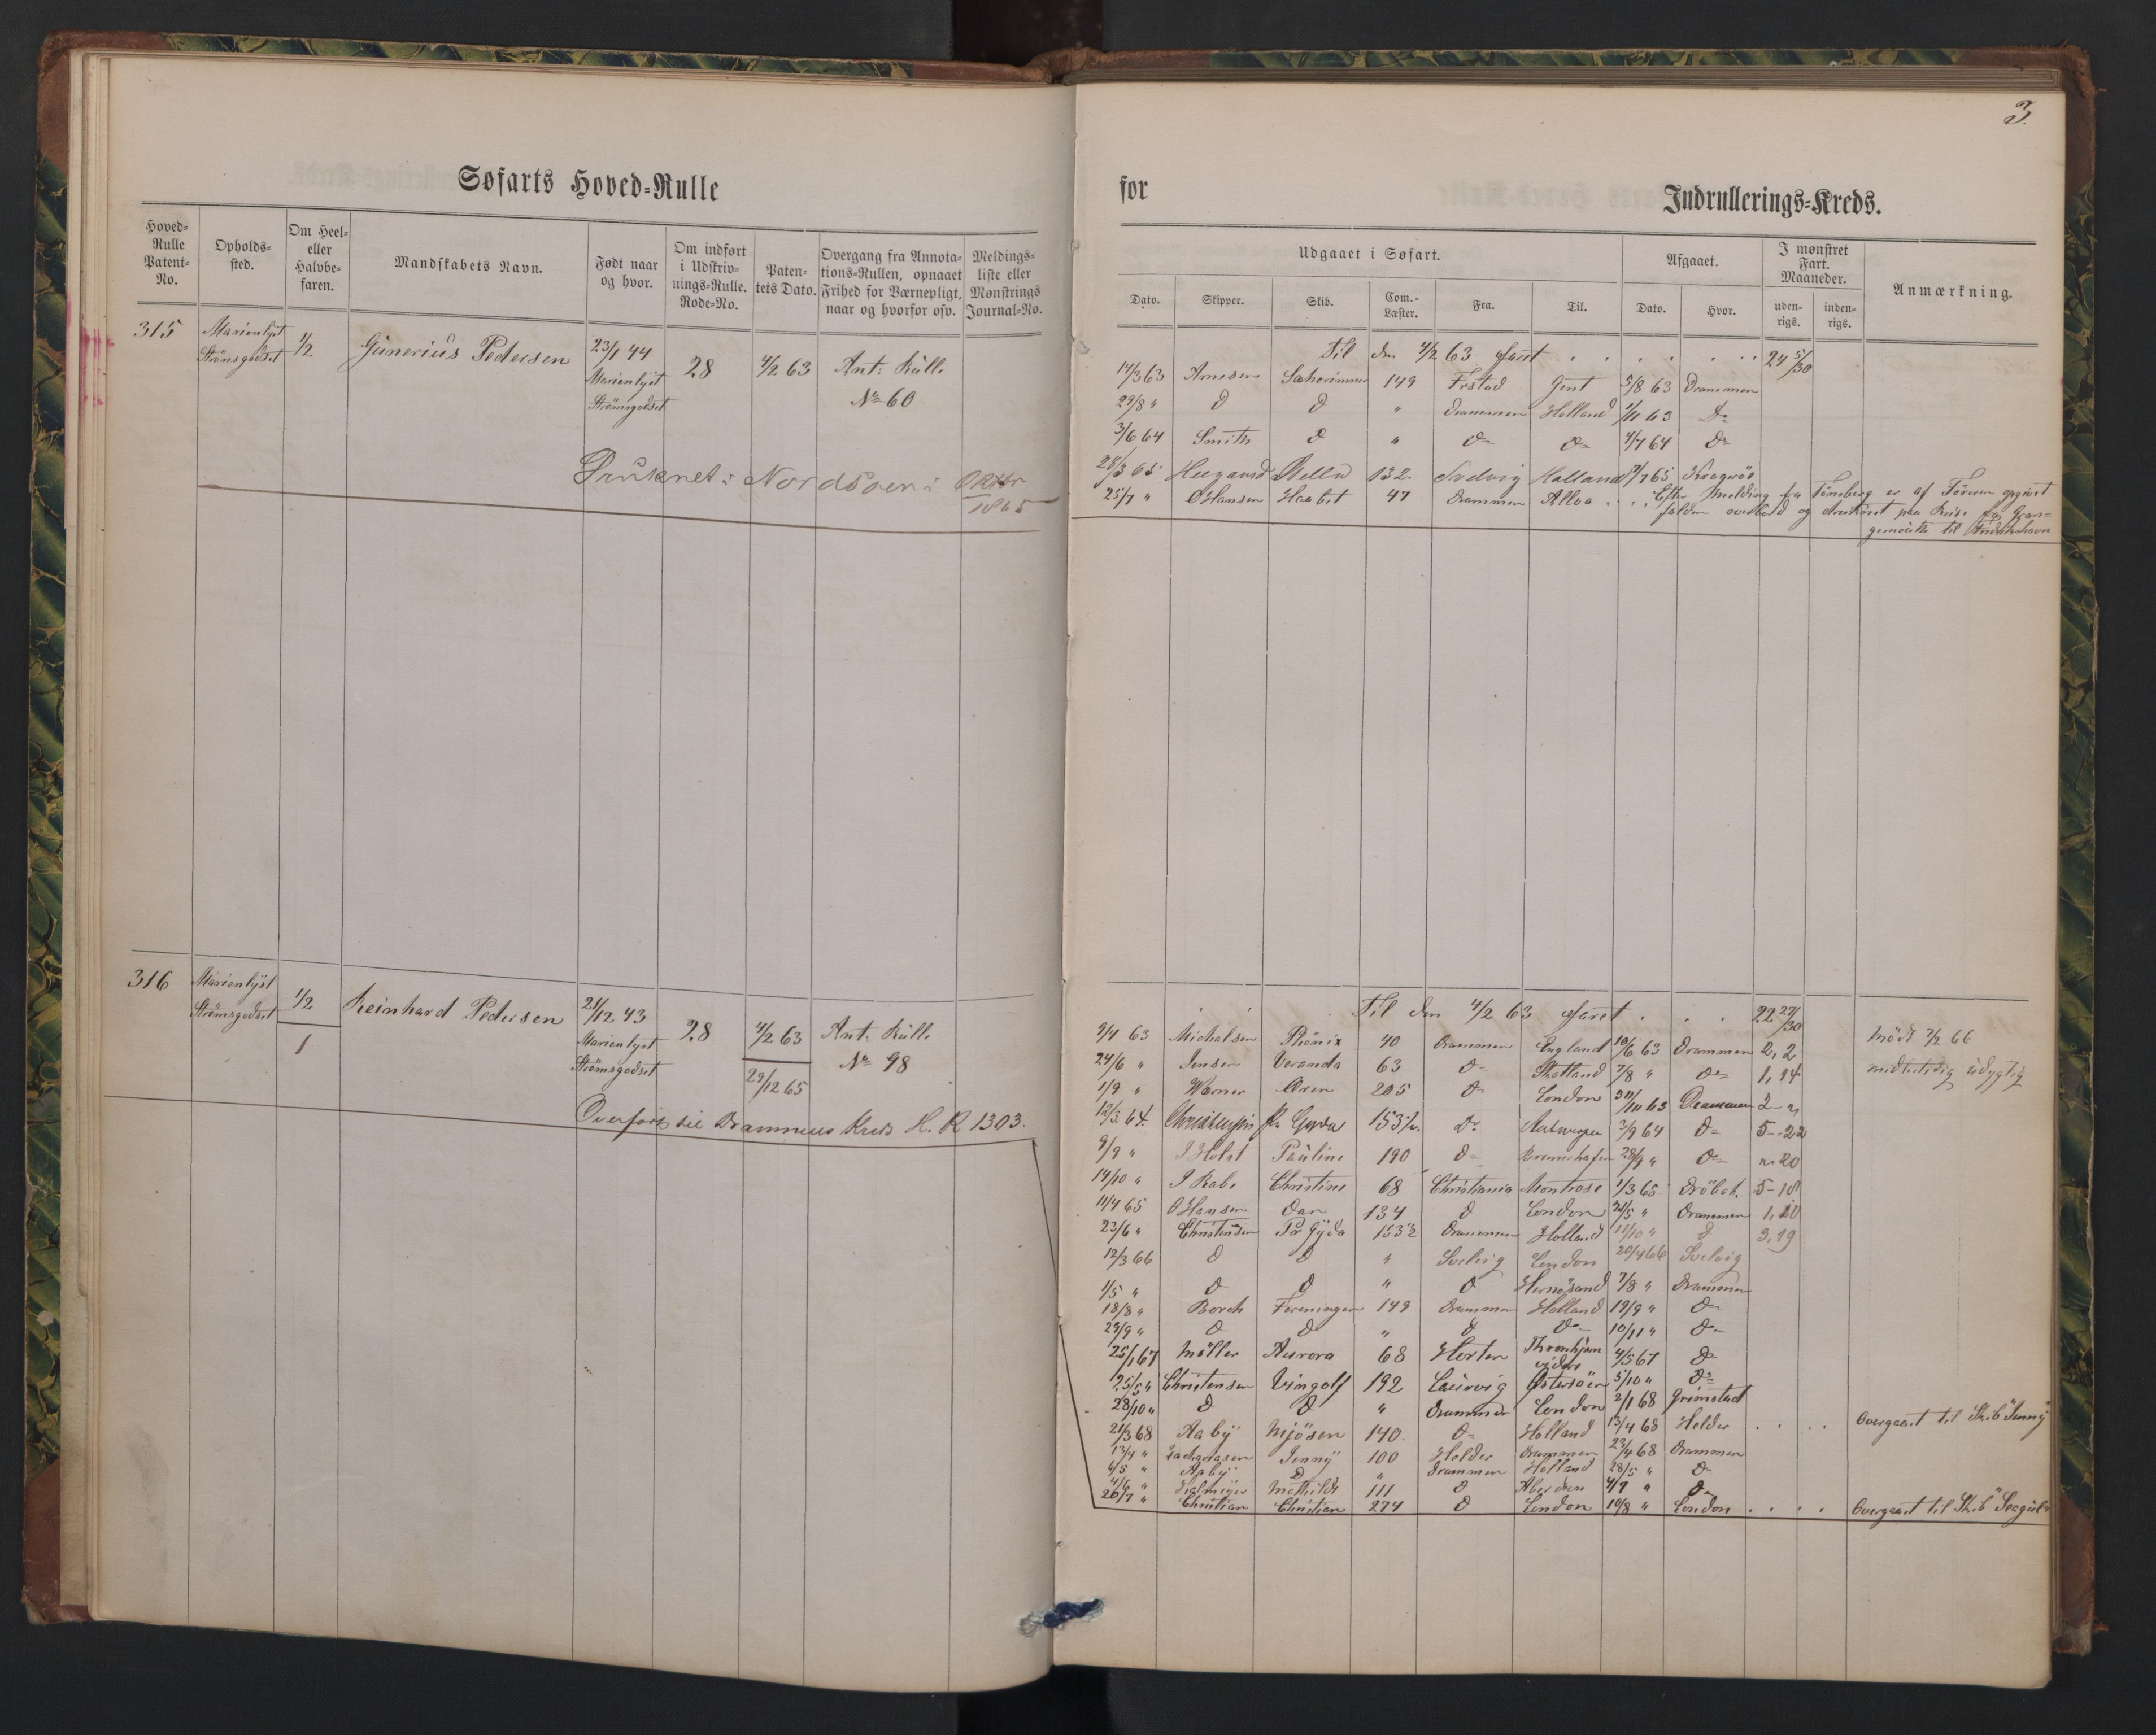 3.
Søfarts Hoved-Rulle
for Indrullerings-Kreds.
Hoved-Rulle Patent-No. Opholds-sted. Om Heel- eller Halvbe-faren. Mandskabets Navn. Født naar og hvor. Om indført i Udskriv-nings-Rulle. Rode-No. Paten-tets Dato. Overgang fra Annota-tions-Rullen, opnaaet Frihed for Værnepligt, naar og hvorfor osv. Meldings-liste eller Mønstrings Journal-No.
Udgaaet i Søfart. Afgaaet. I mønstret Fart. Maaneder. Anmærkning.
Dato. Skipper. Skib. Com.-Læster. Fra. Til. Dato. Hvor. uden-rigs. inden-rigs.
315 Marienlyst Strømsgodset 1/2 Gunerius Pedersen 23/1 44 Marienlyst Strømsgodset 28 4/2 63 Ant: Rulle No 60
Druknet i Nordsøen i Oktbr 1865
Til den 4/2 63 faret . . . . . . 24 5/30
14/3 63 Arnesen 149 Frstad Gent 5/8 63 Drammen
29/8 " D D " Drammen Holland 1/11 63 Do
3/6 64 Smith D " Do Do 4/7 64 Do
28/3 65 132. Svelvig Holland 65 Kragerø
25/7 " O Hansen Haabet 47 Drammen Alloa . . . Efter Melding fra Tønsberg er af Føreren opgivet
falden overbord og druknet paa Reise fra Gran=
gemouth til Frederikshavn
316 Marienlyst Strømsgodset 1/2 1 Reinhard Pedersen 21/12 43 Marienlyst Strømsgodset 28 4/2 63 29/12 65 Ant: Rulle No 98
Overført til Drammens Kreds H. R 1303.
Til den 4/2 63 faret . . . 22 27/30
9/4 63 Michelsen Phönix 40 Drammen England 10/6 63 Drammen 2, 2 Mødt 7/2 66
24/6 " Jensen Veranda 63 D Skotland 7/8 " Do 1, 14 midlertidig udygtig
1/9 " Werner 205 D London 63 Drammen
12/3 64. Christensen Gyda 153 1/2. Do Antwerpen 3/9 64 Do 5-22
9/9 " J Holst Pauline 190 D Bremerhafen 28/9 " Do " 20
14/10 " J Rabe Christine 68 Christiania Montrose 1/3 65 Drøbak. 5-18
11/4 65 O Hansen Dan 134 D London 21/5 " Drammen 1, 10
23/6 " Christensen Gyda 153 1/2 Drammen Holland 11/10 " D 3, 19
12/3 66 D D " Svelvig London 20/4 66 Svelvig
1/5 " D D " D Hernøsand 7/8 " Drammen
18/8 " Borch Foreningen 149 Drammen Holland 19/9 " Do
29/9 " D D " D Do 10/11 " Do
25/1 67 Møller Aurora 68 Horten Thronhjem videre 4/5 67 D
25/5 " Christensen Vingolf 192 Laurvig Østersøen 5/10 " Do
28/10 " D D " Drammen London 2/1 68 Grimstad
21/3 68 Aaby Mjøsen 140 Do Holland 13/4 68 Helder . . . Overgaaet til Skib "Jenny"
13/4 " Zachariasen Jenny 100 Helder Drammen 23/4 68 Drammen
4/5 " Aaby D " Drammen Holland 28/5 " D
4/6 " Mathilde 111 D Aberdeen 4/7 " Do
20/7 " Christian Christian 274 D London 10/8 " London . . . . Overgaaet til Skib "Seagul"